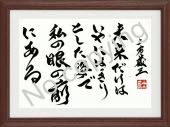 未来だけは
いやにはっきり
とした姿で
私の眼の前
にある
No copying